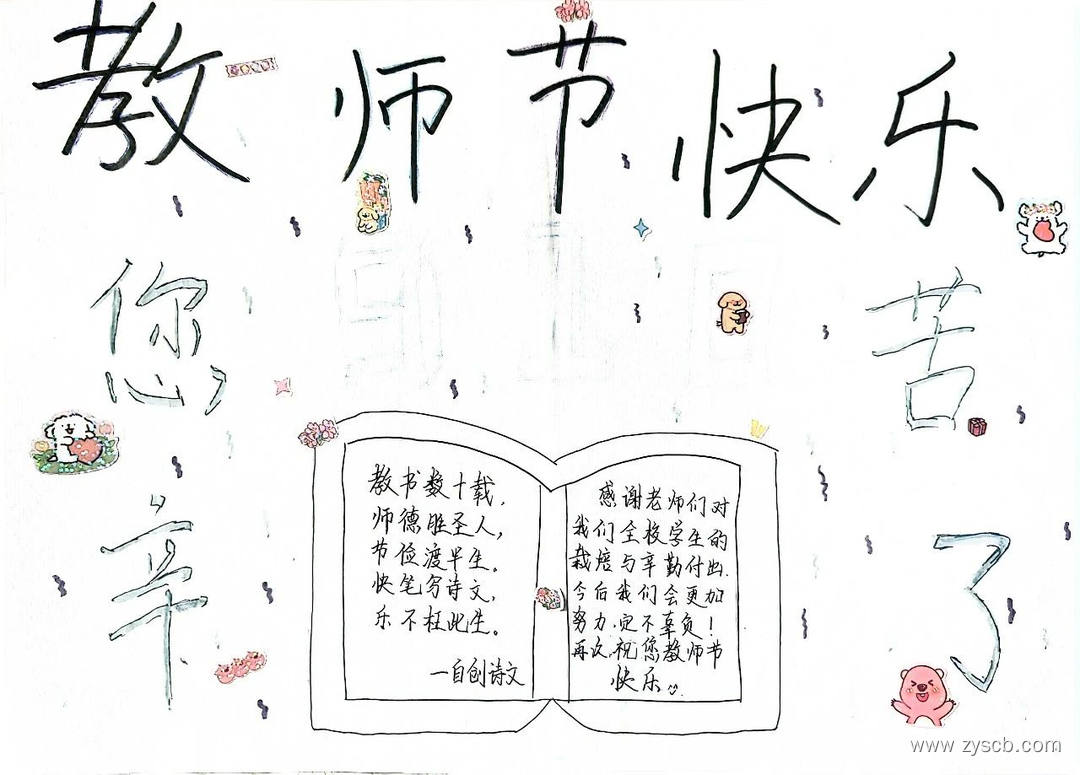 教师节快乐
您
辛
苦
了
教书数十载，
师德胜圣人，
节俭渡半生。
快笔写诗文，
乐不枉此生。
一自创诗文
感谢老师们对
我们全校学生的
栽培与辛勤付出.
今后我们会更加
努力.定不辜负！
再次.祝您教师节
快乐
www.zyscb.com